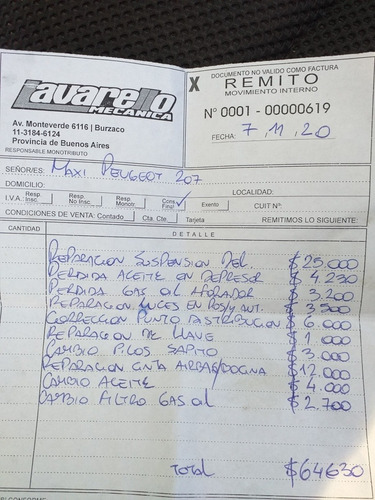 DOCUMENTO NO VALIDO COMO FACTURA
X REMITO
MOVIMIENTO INTERNO
Nº 0001 - 00000619
FECHA: 7, 11, 20
Lavarello
MECANICA
Av. Monteverde 6116 | Burzaco
11-3184-6124
Provincia de Buenos Aires
RESPONSABLE MONOTRIBUTO
SEÑOR/ES: MAXI PEUGEOT 207
DOMICILIO: LOCALIDAD:
I.V.A.: Resp. Insc. Resp. No Insc. Resp. Monotr. Cons. Final Exento CUIT Nº:
CONDICIONES DE VENTA: Contado Cta. Cte. Tarjeta REMITIMOS LO SIGUIENTE:
CANTIDAD DETALLE
REPARACION SUSPENSION DEL. $ 25.000
PERDIDA ACEITE EN DEPRESOR $ 4.230
PERDIDA GAS OIL AFORADOR $ 3.200
REPARACION LUCES EN POS/Y AUT. $ 3.500
CORRECCION PUNTO DISTRIBUCION $ 6.000
REPARACION DE LLAVE $ 1.000
CAMBIO PICOS SAPITO $ 3.000
REPARACION CINTA AIRBAG/BOCINA $ 12.000
CAMBIO ACEITE $ 4.000
CAMBIO FILTRO GAS OIL $ 2.700
TOTAL $64630